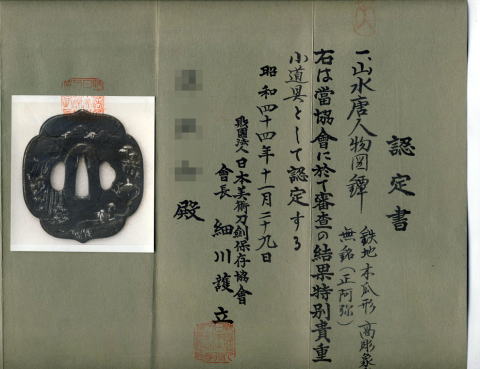 認定書
一、山水唐人物図鐔
鉄地 木瓜形 高彫象
無銘(正阿弥)
右は當協會に於て審査の結果特別貴重
小道具として認定する
昭和四十四年十一月二十九日
財團法人日本美術刀剣保存協會
會長 細川護立
殿